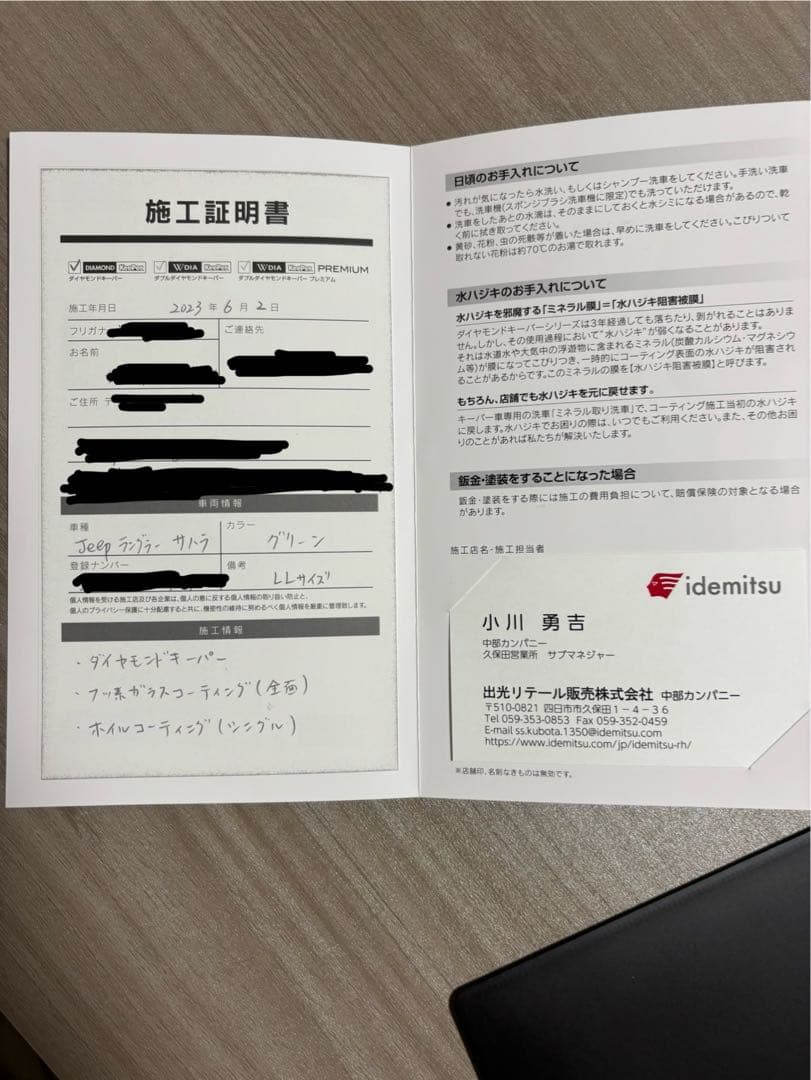 施工証明書
DIAMOND KeePer
ダイヤモンドキーパー
W DIA KeePer
ダブルダイヤモンドキーパー
W DIA KeePer PREMIUM
ダブルダイヤモンドキーパー プレミアム
施工年月日 2023年6月2日
フリガナ
ご連絡先
お名前
ご住所 〒
車両情報
車種
Jeep ラングラー サハラ
カラー
グリーン
登録ナンバー
備考
LLサイズ
個人情報を受ける施工店及び各企業は、個人の意に反する個人情報の取り扱い防止と、
個人のプライバシー保護に十分配慮すると共に、機密性の維持に努めるべく個人情報を厳重に管理致します。
施工情報
・ダイヤモンドキーパー
・フッ素ガラスコーティング(全面)
・ホイルコーティング(シングル)
日頃のお手入れについて
● 汚れが気になったら水洗い、もしくはシャンプー洗車をしてください。手洗い洗車
でも、洗車機(スポンジブラシ洗車機に限定)でも洗っていただけます。
● 洗車をしたあとの水滴は、そのままにしておくと水シミになる場合があるので、乾
く前に拭き取ってください。
● 黄砂、花粉、虫の死骸等が着いた場合は、早めに洗車をしてください。こびりついて
取れない花粉は約70℃のお湯で取れます。
水ハジキのお手入れについて
水ハジキを邪魔する「ミネラル膜」=「水ハジキ阻害被膜」
ダイヤモンドキーパーシリーズは3年経過しても落ちたり、剥がれることはありま
せん。しかし、その使用過程において“水ハジキ”が弱くなることがあります。
それは水道水や大気中の浮遊物に含まれるミネラル(炭酸カルシウム・マグネシウ
ム等)が膜になってこびりつき、一時的にコーティング表面の水ハジキが阻害され
ることがあるからです。このミネラルの膜を【水ハジキ阻害被膜】と呼びます。
もちろん、店舗でも水ハジキを元に戻せます。
キーパー車専用の洗車「ミネラル取り洗車」で、コーティング施工当初の水ハジキ
に戻します。水ハジキでお困りの際は、いつでもご利用ください。また、その他お困
りのことがあれば私たちが解決いたします。
鈑金・塗装をすることになった場合
鈑金・塗装をする際には施工の費用負担について、賠償保険の対象となる場合
があります。
施工店名・施工担当者
idemitsu
小川 勇吉
中部カンパニー
久保田営業所 サブマネジャー
出光リテール販売株式会社 中部カンパニー
〒510-0821 四日市市久保田1-4-36
Tel 059-353-0853 Fax 059-352-0459
E-mail ss.kubota.1350@idemitsu.com
https://www.idemitsu.com/jp/idemitsu-rh/
※店舗印、名刺なきものは無効です。